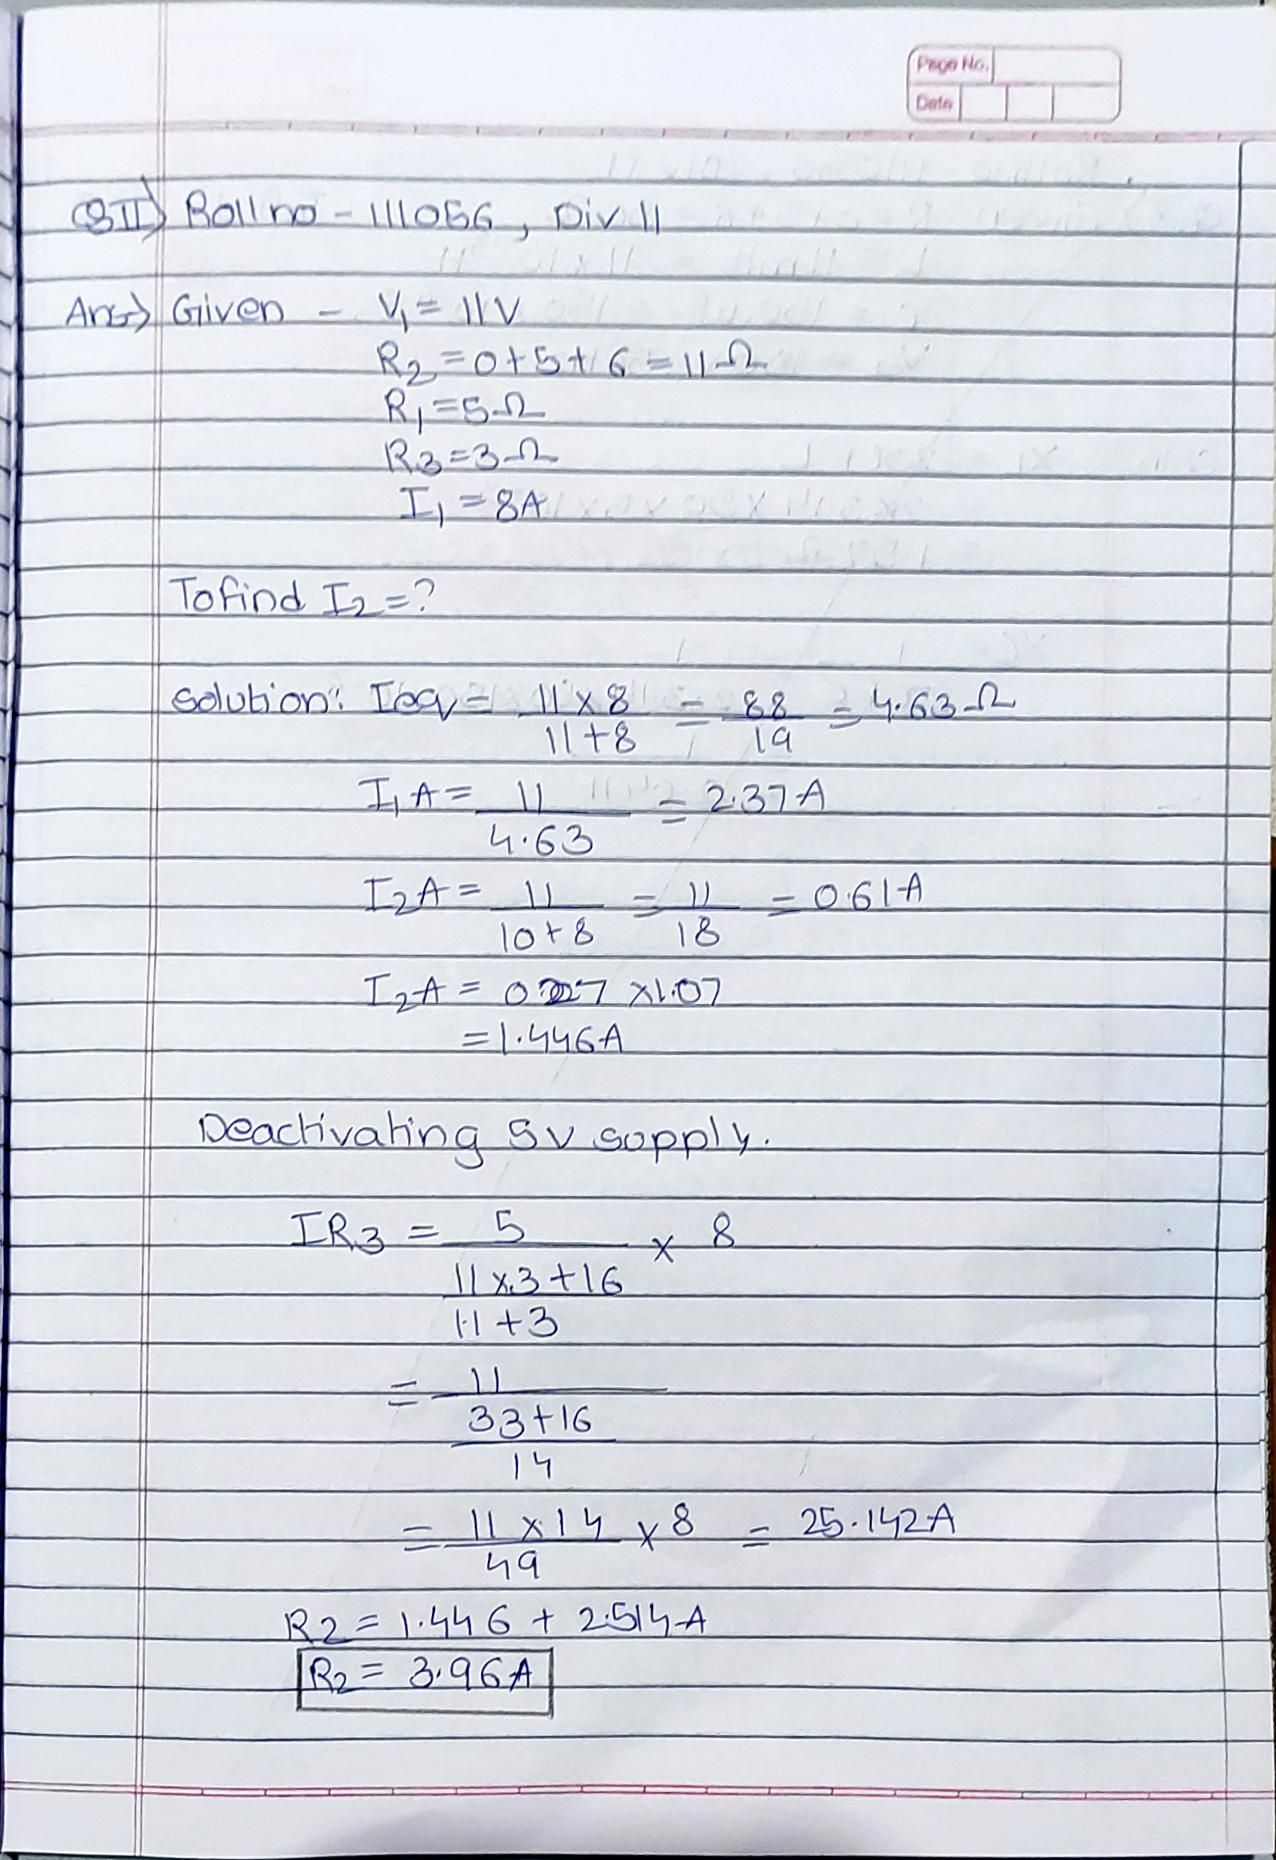 Page No.
Date
Q3II) Roll no - 111056, Div 11
Ans) Given - V₁ = 11V
R₂ = 0+5+6 = 11Ω
R₁ = 5Ω
R3 = 3Ω
I₁ = 8A
To find I₂ = ?
Solution: Ieqv = 11 x 8 / 11+8 = 88 / 19 = 4.63Ω
I₁A = 11 / 4.63 = 2.37A
I₂A = 11 / 10+8 = 11 / 18 = 0.61A
I₂A = x1.07
= 1.446A
Deactivating 5V supply.
IR3 = 5 / 11 x 3 + 16 / 11+3 x 8
= 11 / 33+16 / 14
= 11 x 14 / 49 x 8 = 25.142A
R2 = 1.446 + 2.514A
R2 = 3.96A